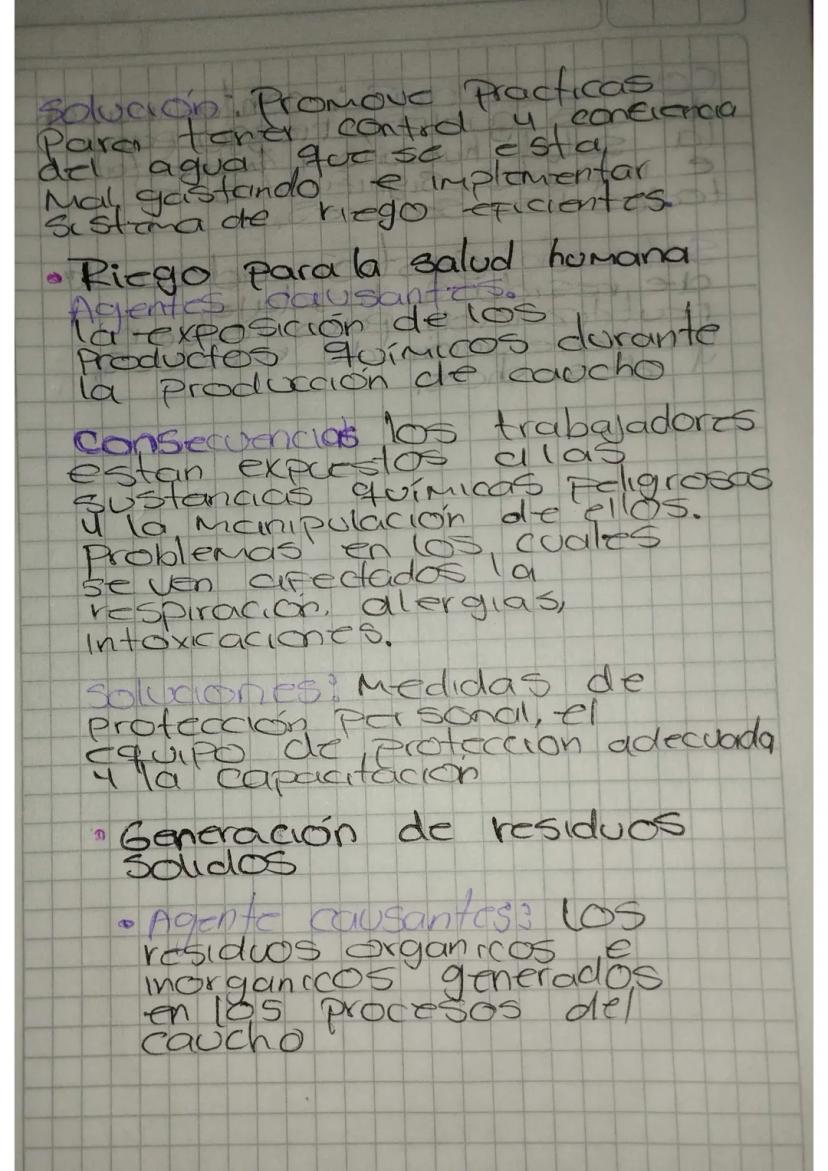 Solución: Promove Practicas
Para tener control y conciencia
del agua que se esta
Mal gastando e implementar
Sistema de riego eficientes.
• Riego Para la salud humana
Agentes causantes.
la exposición de los
Productos químicos durante
la producción de caucho
Consecuencias los trabajadores
estan expuestos a las
sustancias químicas Peligrosas
y la manipulación de ellos.
Problemas en los cuales
se ven afectados la
respiración, alergias,
intoxicaciones.
Soluciones: Medidas de
protección Personal, el
equipo de protección adecuada
y la capacitación
• Generación de residuos
Solidos
• Agente causantes: Los
residuos organicos e
inorganicos generados
en los procesos del
caucho